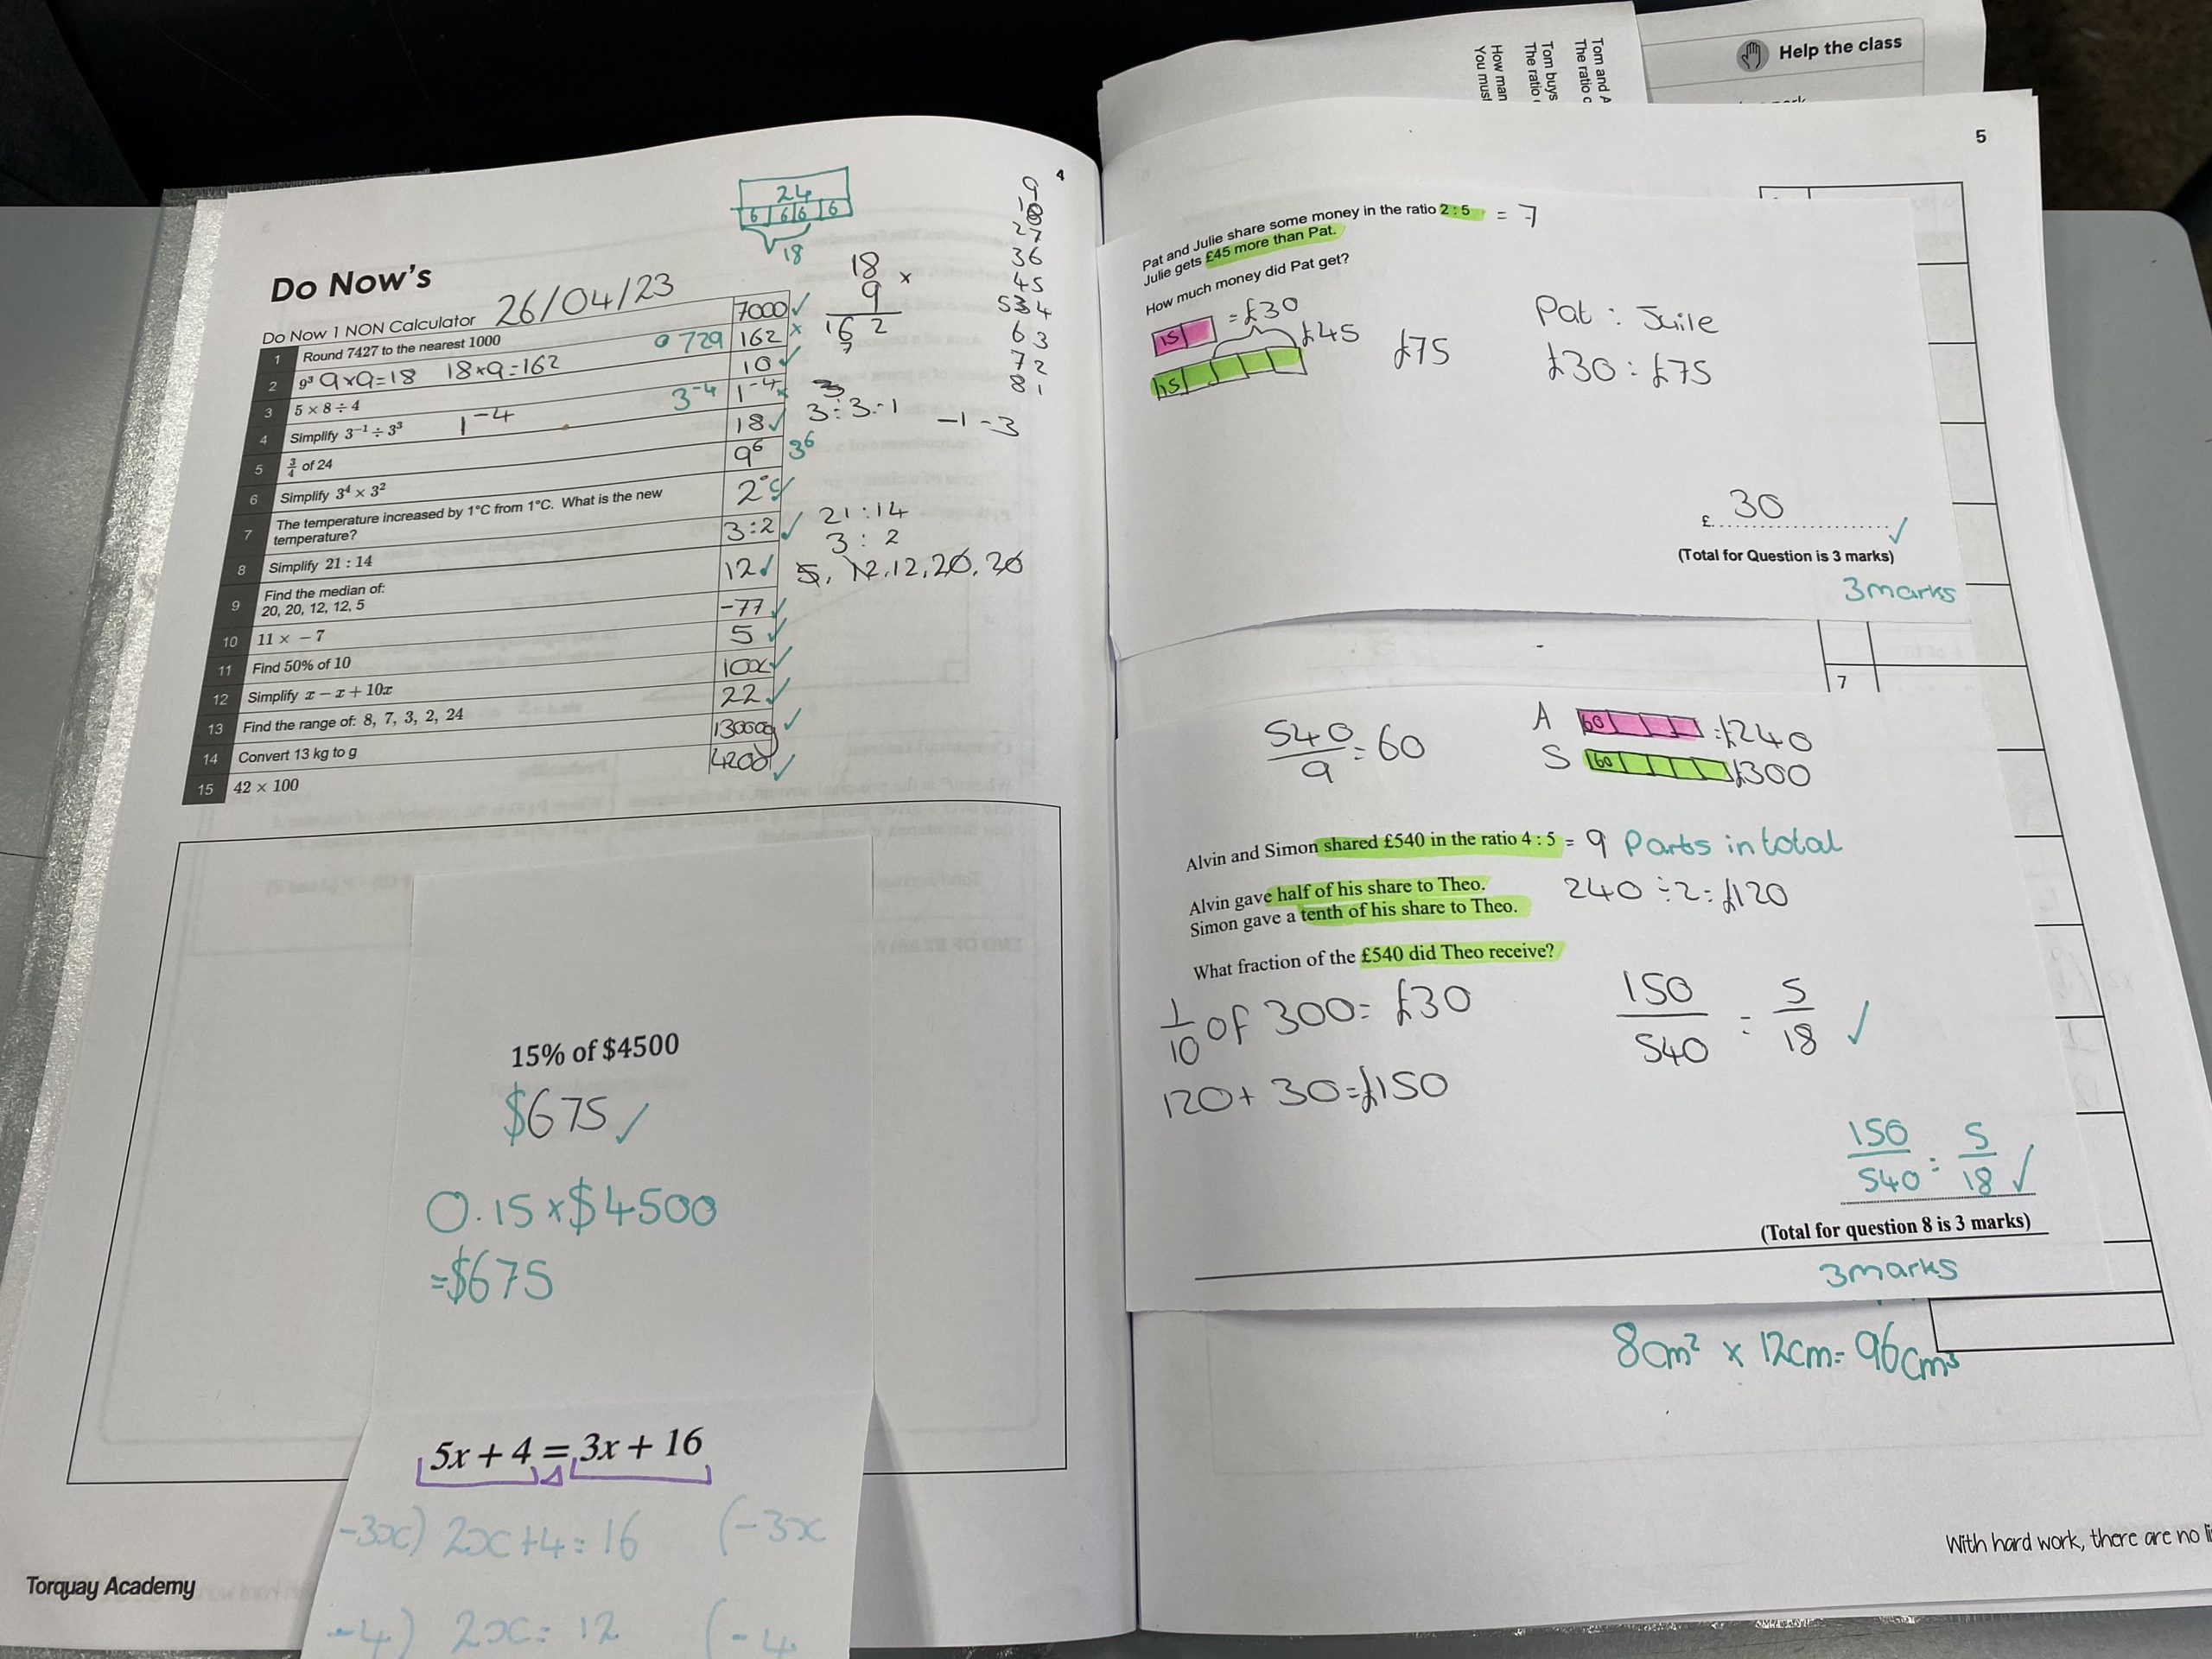 4
24
6 6 6 6
18
Do Now's
26/04/23
Do Now 1 NON Calculator
1 Round 7427 to the nearest 1000 7000 ✓
2 9³ 9×9=18 18×9=162 729 162 ×
3 5 × 8 ÷ 4 10 ✓
4 Simplify 3⁻¹ ÷ 3³ 1⁻⁴ 3⁻⁴ 1⁻⁴ ×
5 3/4 of 24 18 ✓
6 Simplify 3⁴ × 3² 9⁶ 3⁶
7 The temperature increased by 1°C from 1°C. What is the new
temperature? 2°C ✓
8 Simplify 21 : 14 3:2 ✓
9 Find the median of:
20, 20, 12, 12, 5 12 ✓
10 11 × − 7 -77 ✓
11 Find 50% of 10 5 ✓
12 Simplify x − x + 10x 10x ✓
13 Find the range of: 8, 7, 3, 2, 24 22 ✓
14 Convert 13 kg to g 13000g ✓
15 42 × 100 4200 ✓
18
9 ×
162
7
9
18
27
36
45
54
63
72
81
3÷3=1
-1-3
21:14
3:2
5, 12, 12, 20, 20
15% of $4500
$675 ✓
0.15 × $4500
=$675
5x + 4 = 3x + 16
-3x) 2x+4=16 (-3x
-4) 2x=12 (-4
Torquay Academy
Help the class
Tom and A
The ratio
Tom buys
The ratio
How man
You must
5
Pat and Julie share some money in the ratio 2 : 5 = 7
Julie gets £45 more than Pat.
How much money did Pat get?
15 =£30
£45
15
£75
Pat : Juile
£30 : £75
£ 30 ✓
(Total for Question is 3 marks)
3marks
7
540/9 = 60
A 60 =£240
S 60 £300
Alvin and Simon shared £540 in the ratio 4 : 5 = 9 Parts in total
Alvin gave half of his share to Theo. 240÷2=£120
Simon gave a tenth of his share to Theo.
What fraction of the £540 did Theo receive?
1/10 of 300=£30
120+30=£150
150/540 = 5/18 ✓
150/540 = 5/18 ✓
(Total for question 8 is 3 marks)
3marks
8cm² × 12cm= 96cm³
With hard work, there are no li